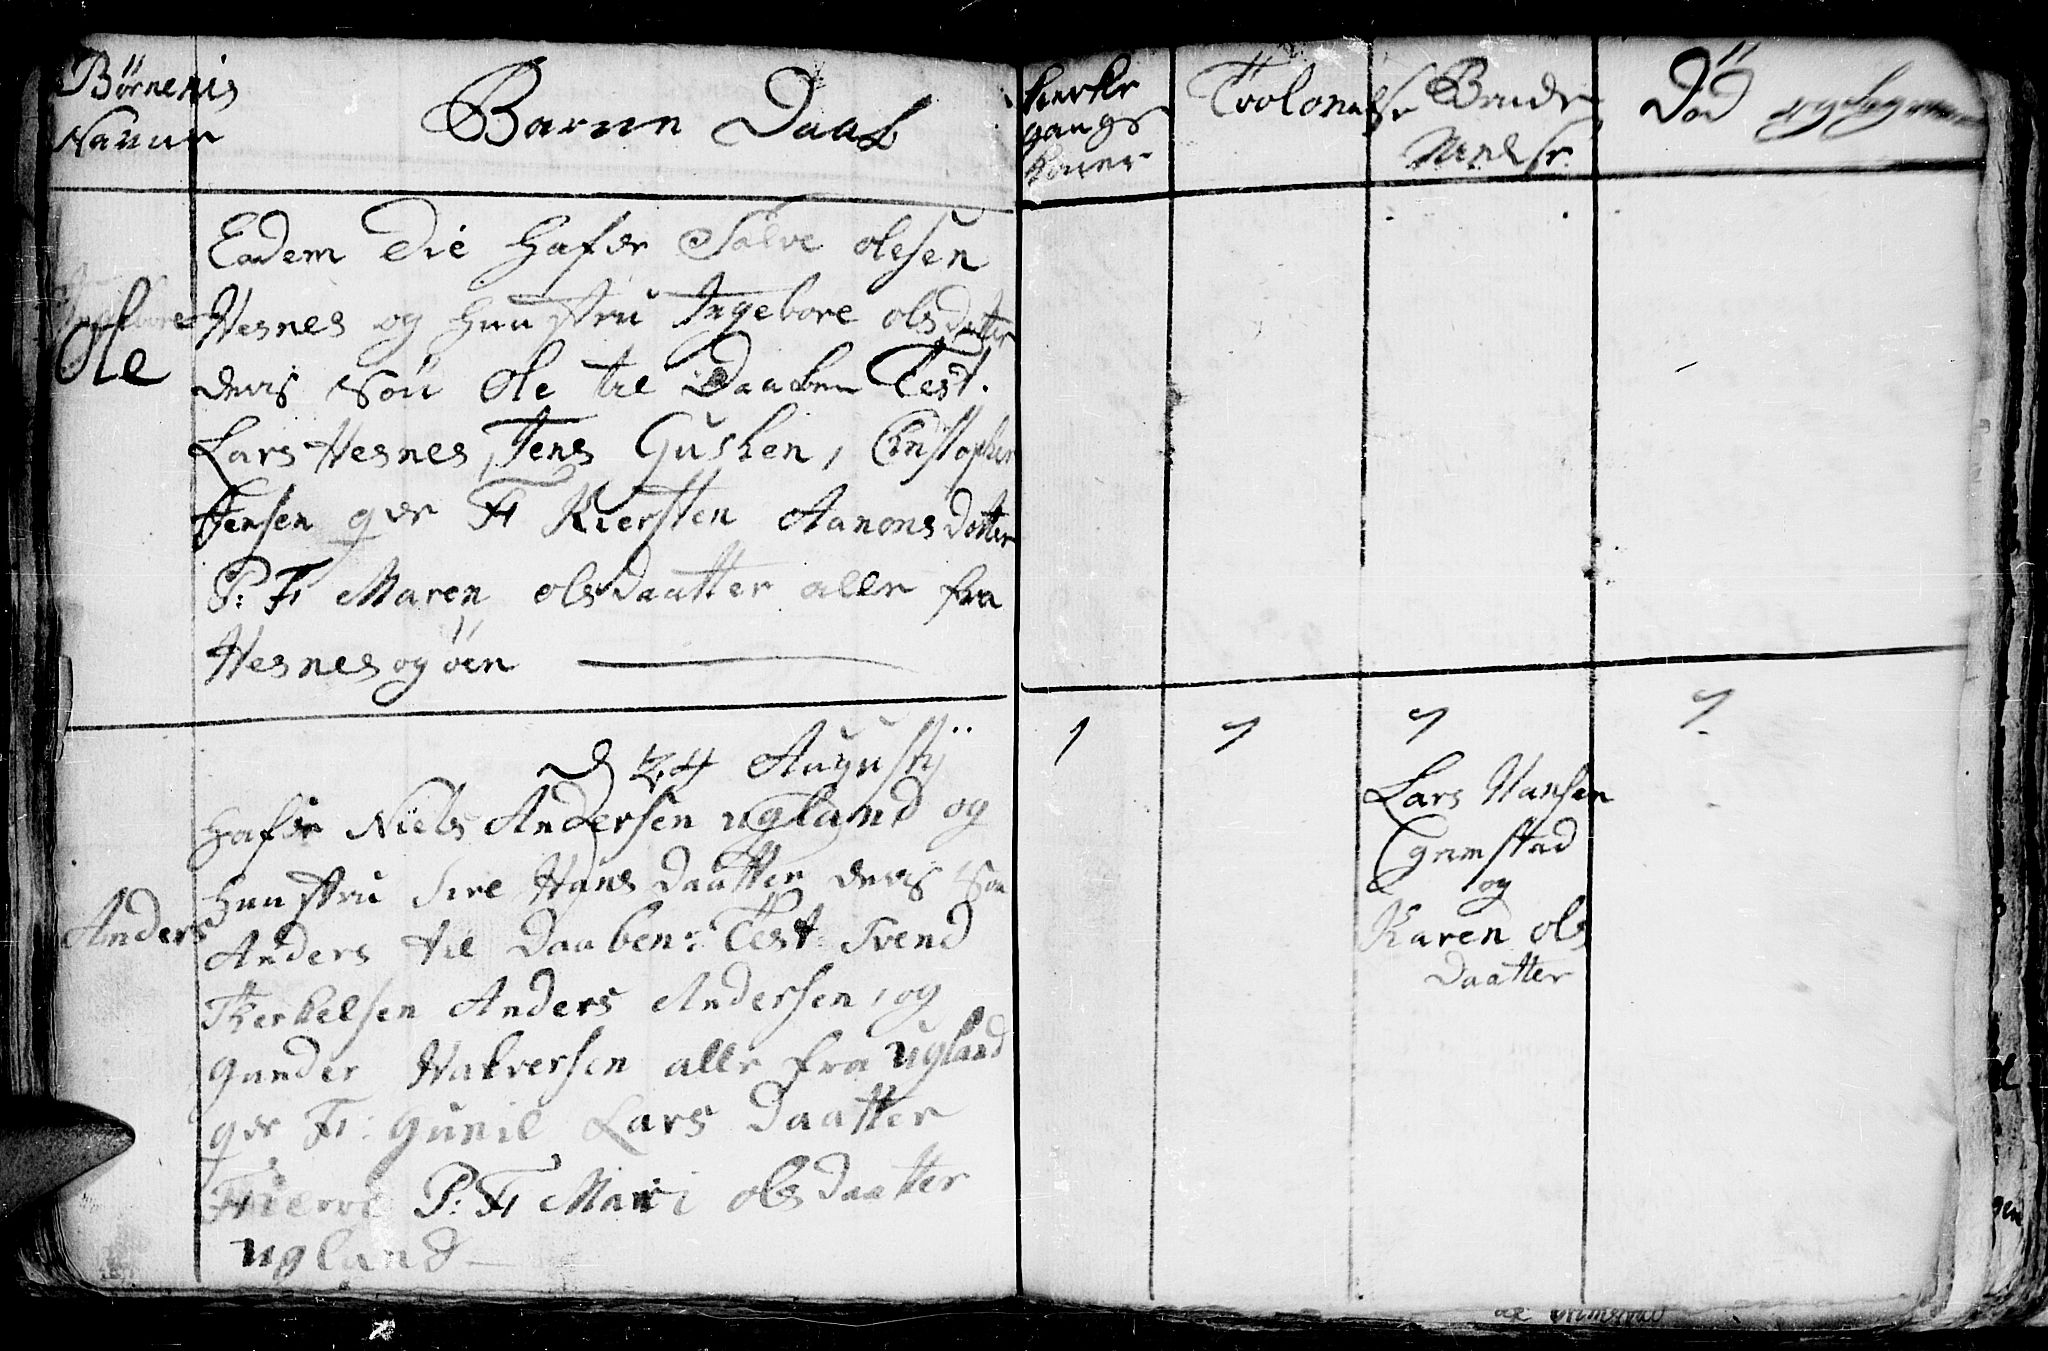 Børnenis
Nafne
Barne Daab
Kierke
gangs
Koner
Trolovelse
Brude
Vielser
Død
Eadem Die hafde Salve olesen
Ingebore
Hesnes og hunstru Ingebore olsdatter
Ole
deris Søn Ole til Daaben Test.
Lars Hesnes, Jens Gusken, Christopher
Jensen gde F: Kiersten Aanons dotter
P: F: Maren olsdaatter alle fra
Hesnes og øen
D 24 Augustij
1 1 1 1
hafde Niels Andersen ugland og
hunstru Sire Hans daatter deris Søn
Anders
Anders til Daaben: Test Svend
Therkelsen Anders Andersen, og
gunder Halversen alle fra ugland
gde F: gunil Lars Daatter
P: F: Mari olsdaatter
ugland
Lars Hansen
Egrimstad
og
Karen ols
Daatter